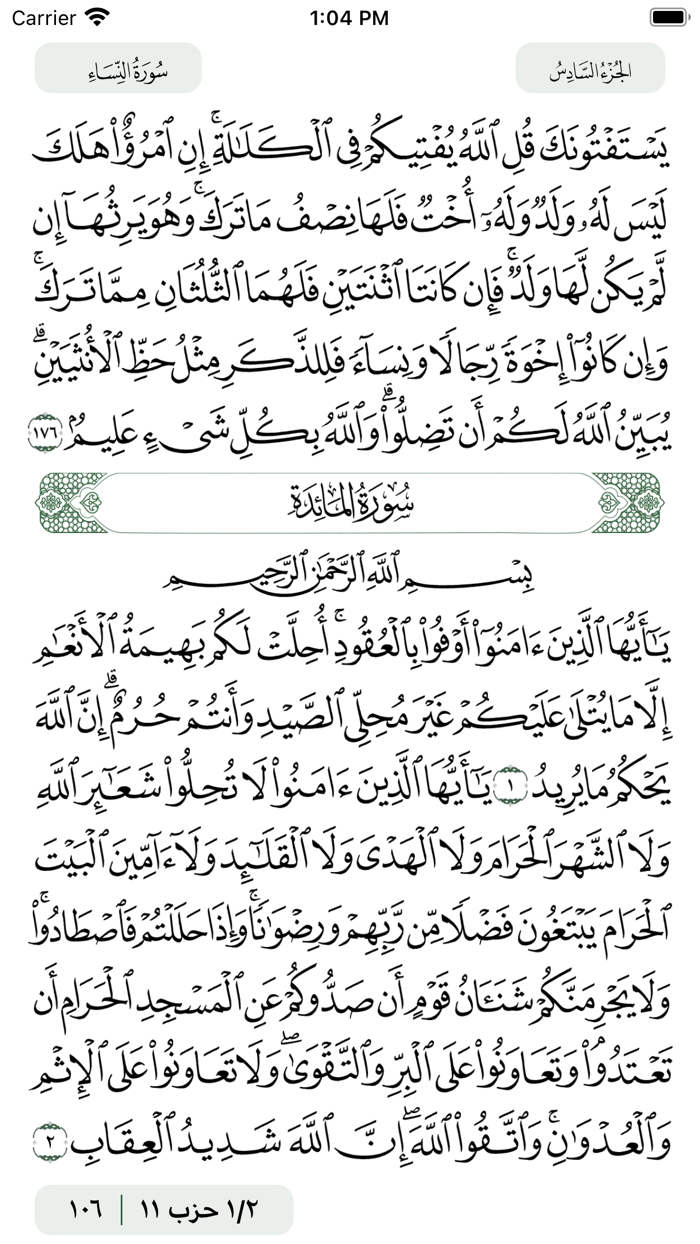 Carrier 1:04 PM
سُورَةُ النِّسَاءِ
الجُزْءُ السَّادِسُ
يَسْتَفْتُونَكَ قُلِ ٱللَّهُ يُفْتِيكُمْ فِي ٱلْكَلَـٰلَةِۚ إِنِ ٱمْرُؤٌا۟ هَلَكَ
لَيْسَ لَهُۥ وَلَدٌ وَلَهُۥٓ أُخْتٌ فَلَهَا نِصْفُ مَا تَرَكَۚ وَهُوَ يَرِثُهَآ إِن
لَّمْ يَكُن لَّهَا وَلَدٌۚ فَإِن كَانَتَا ٱثْنَتَيْنِ فَلَهُمَا ٱلثُّلُثَانِ مِمَّا تَرَكَۚ
وَإِن كَانُوٓا۟ إِخْوَةً رِّجَالًا وَنِسَآءً فَلِلذَّكَرِ مِثْلُ حَظِّ ٱلْأُنثَيَيْنِۗ
يُبَيِّنُ ٱللَّهُ لَكُمْ أَن تَضِلُّوا۟ۗ وَٱللَّهُ بِكُلِّ شَىْءٍ عَلِيمٌۢ ١٧٦
سُورَةُ المَائِدَةِ
بِسْمِ ٱللَّهِ ٱلرَّحْمَـٰنِ ٱلرَّحِيمِ
يَـٰٓأَيُّهَا ٱلَّذِينَ ءَامَنُوٓا۟ أَوْفُوا۟ بِٱلْعُقُودِۚ أُحِلَّتْ لَكُم بَهِيمَةُ ٱلْأَنْعَـٰمِ
إِلَّا مَا يُتْلَىٰ عَلَيْكُمْ غَيْرَ مُحِلِّى ٱلصَّيْدِ وَأَنتُمْ حُرُمٌۗ إِنَّ ٱللَّهَ
يَحْكُمُ مَا يُرِيدُ ١ يَـٰٓأَيُّهَا ٱلَّذِينَ ءَامَنُوا۟ لَا تُحِلُّوا۟ شَعَـٰٓئِرَ ٱللَّهِ
وَلَا ٱلشَّهْرَ ٱلْحَرَامَ وَلَا ٱلْهَدْىَ وَلَا ٱلْقَلَـٰٓئِدَ وَلَآ ءَآمِّينَ ٱلْبَيْتَ
ٱلْحَرَامَ يَبْتَغُونَ فَضْلًا مِّن رَّبِّهِمْ وَرِضْوَٰنًاۚ وَإِذَا حَلَلْتُمْ فَٱصْطَادُوا۟ۚ
وَلَا يَجْرِمَنَّكُمْ شَنَـَٔانُ قَوْمٍ أَن صَدُّوكُمْ عَنِ ٱلْمَسْجِدِ ٱلْحَرَامِ أَن
تَعْتَدُوا۟ۘ وَتَعَاوَنُوا۟ عَلَى ٱلْبِرِّ وَٱلتَّقْوَىٰۖ وَلَا تَعَاوَنُوا۟ عَلَى ٱلْإِثْمِ
وَٱلْعُدْوَٰنِۚ وَٱتَّقُوا۟ ٱللَّهَۖ إِنَّ ٱللَّهَ شَدِيدُ ٱلْعِقَابِ ٢
١/٢ حزب ١١ | ١٠٦